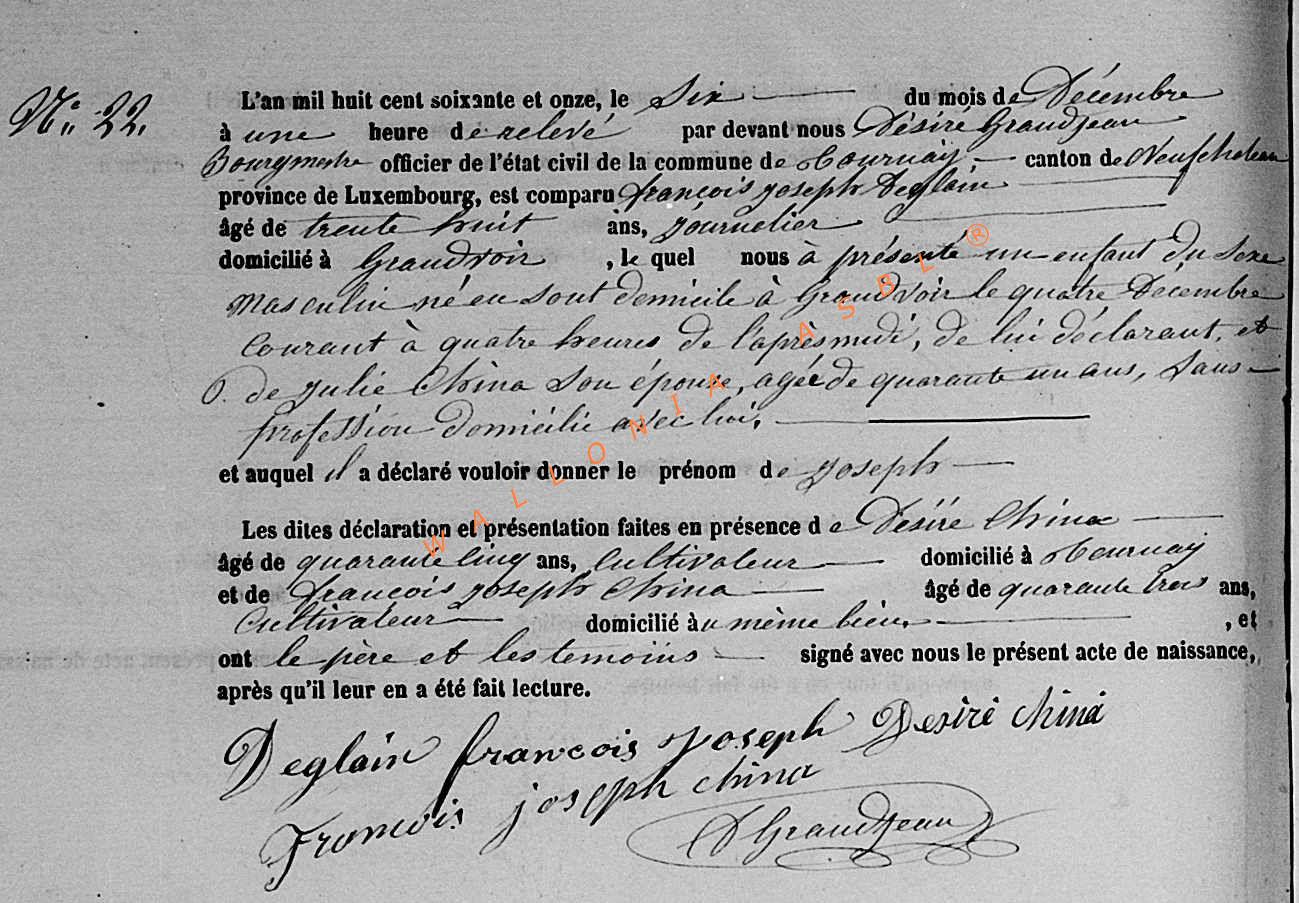 N° 22.
L'an mil huit cent soixante et onze, le Six du mois de Décembre
à une heure de relevé par devant nous Désiré Grandjean
Bourgmestre officier de l'état civil de la commune de Tournay canton de Neufchateau
province de Luxembourg, est comparu françois joseph Deglain
âgé de trente huit ans, journalier
domicilié à Grandvoir, le quel nous à présenté un enfant du sexe
masculin né en sont domicile à Grandvoir le quatre Décembre
courant à quatre heures de l'après midi, de lui déclarant, et
de julie China son épouse, agée de quarante un ans, sans
profession domicilié avec lui.
et auquel il a déclaré vouloir donner le prénom de joseph
Les dites déclaration et présentation faites en présence de Désiré China
âgé de quarante cinq ans, Cultivateur domicilié à Tournay
et de françois joseph China âgé de quarante trois ans,
Cultivateur domicilié au même lieu, et
ont le père et les temoins signé avec nous le présent acte de naissance,
après qu'il leur en a été fait lecture.
Deglain françois joseph Desiré China
François joseph china
D Grandjean
WALLONIA ASBL ®